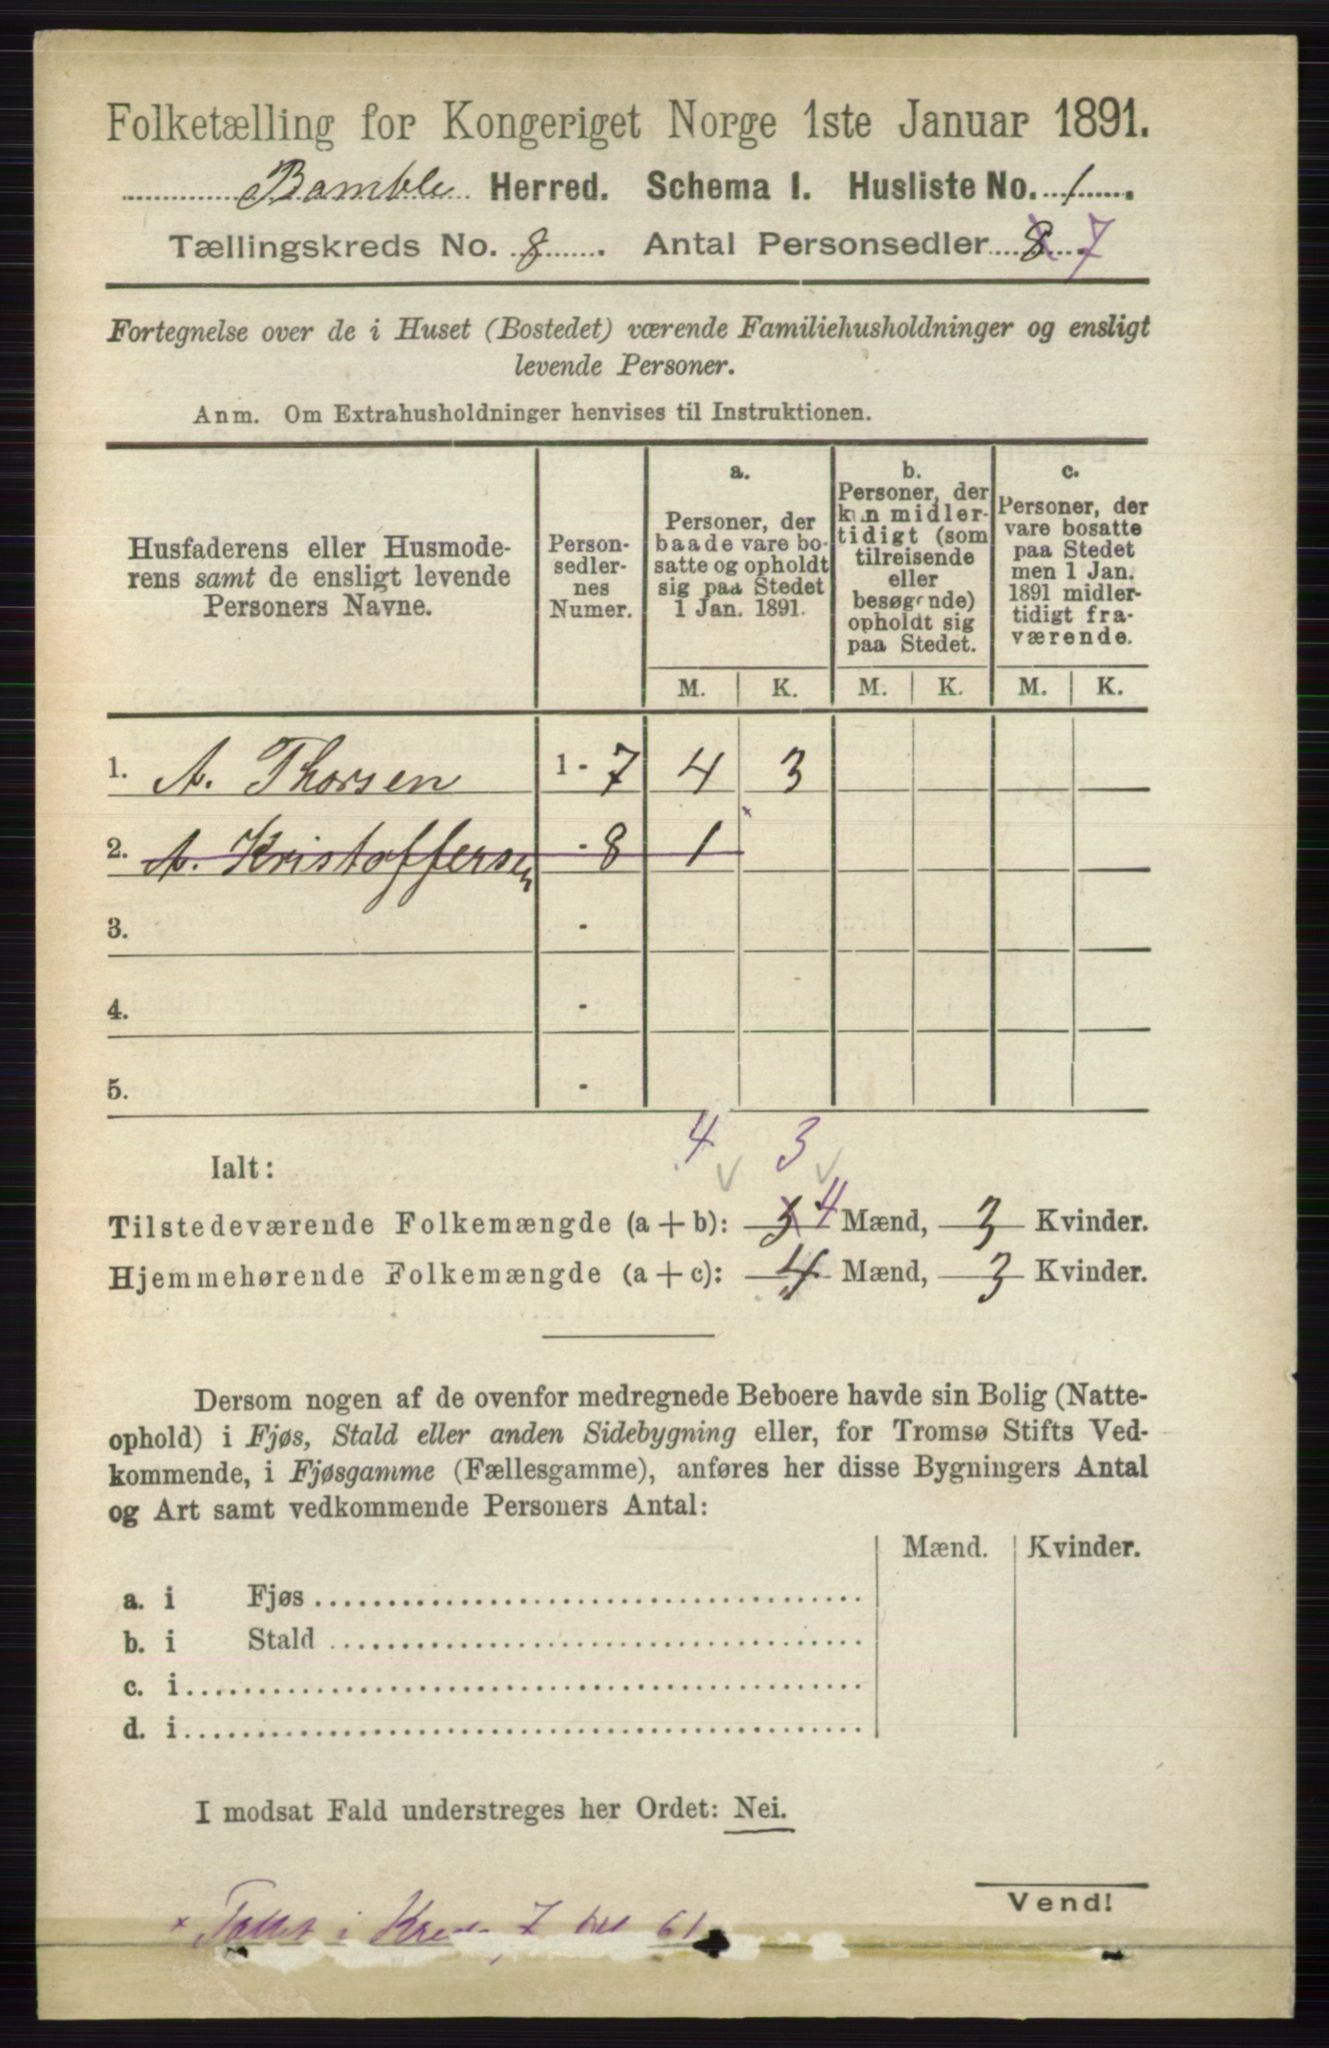 Folketælling for Kongeriget Norge 1ste Januar 1891.
Bamble Herred. Schema I. Husliste No. 1
Tællingskreds No. 8 Antal Personsedler 8 7
Fortegnelse over de i Huset (Bostedet) værende Familiehusholdninger og ensligt
levende Personer.
Anm. Om Extrahusholdninger henvises til Instruktionen.
Husfaderens eller Husmode-
rens samt de ensligt levende
Personers Navne.
Person-
sedler-
nes
Numer.
a.
Personer, der
baade vare bo-
satte og opholdt
sig paa Stedet
1 Jan. 1891.
b.
Personer, der
kun midler-
tidigt (som
tilreisende
eller
besøgende)
opholdt sig
paa Stedet.
c.
Personer, der
vare bosatte
paa Stedet
men 1 Jan.
1891 midler-
tidigt fra-
værende.
M. K. M. K. M. K.
1. A. Thorsen 1 - 7 4 3
2. A. Kristoffersen - 8 1 ×
3. -
4. -
5. -
4 3
Ialt:
Tilstedeværende Folkemængde (a + b): 3 4 Mænd, 3 Kvinder.
Hjemmehørende Folkemængde (a + c): 4 Mænd, 3 Kvinder.
Dersom nogen af de ovenfor medregnede Beboere havde sin Bolig (Natte-
ophold) i Fjøs, Stald eller anden Sidebygning eller, for Tromsø Stifts Ved-
kommende, i Fjøsgamme (Fællesgamme), anføres her disse Bygningers Antal
og Art samt vedkommende Personers Antal:
Mænd. Kvinder.
a. i Fjøs
b. i Stald
c. i
d. i
I modsat Fald understreges her Ordet: Nei.
Vend!
× i 7 61